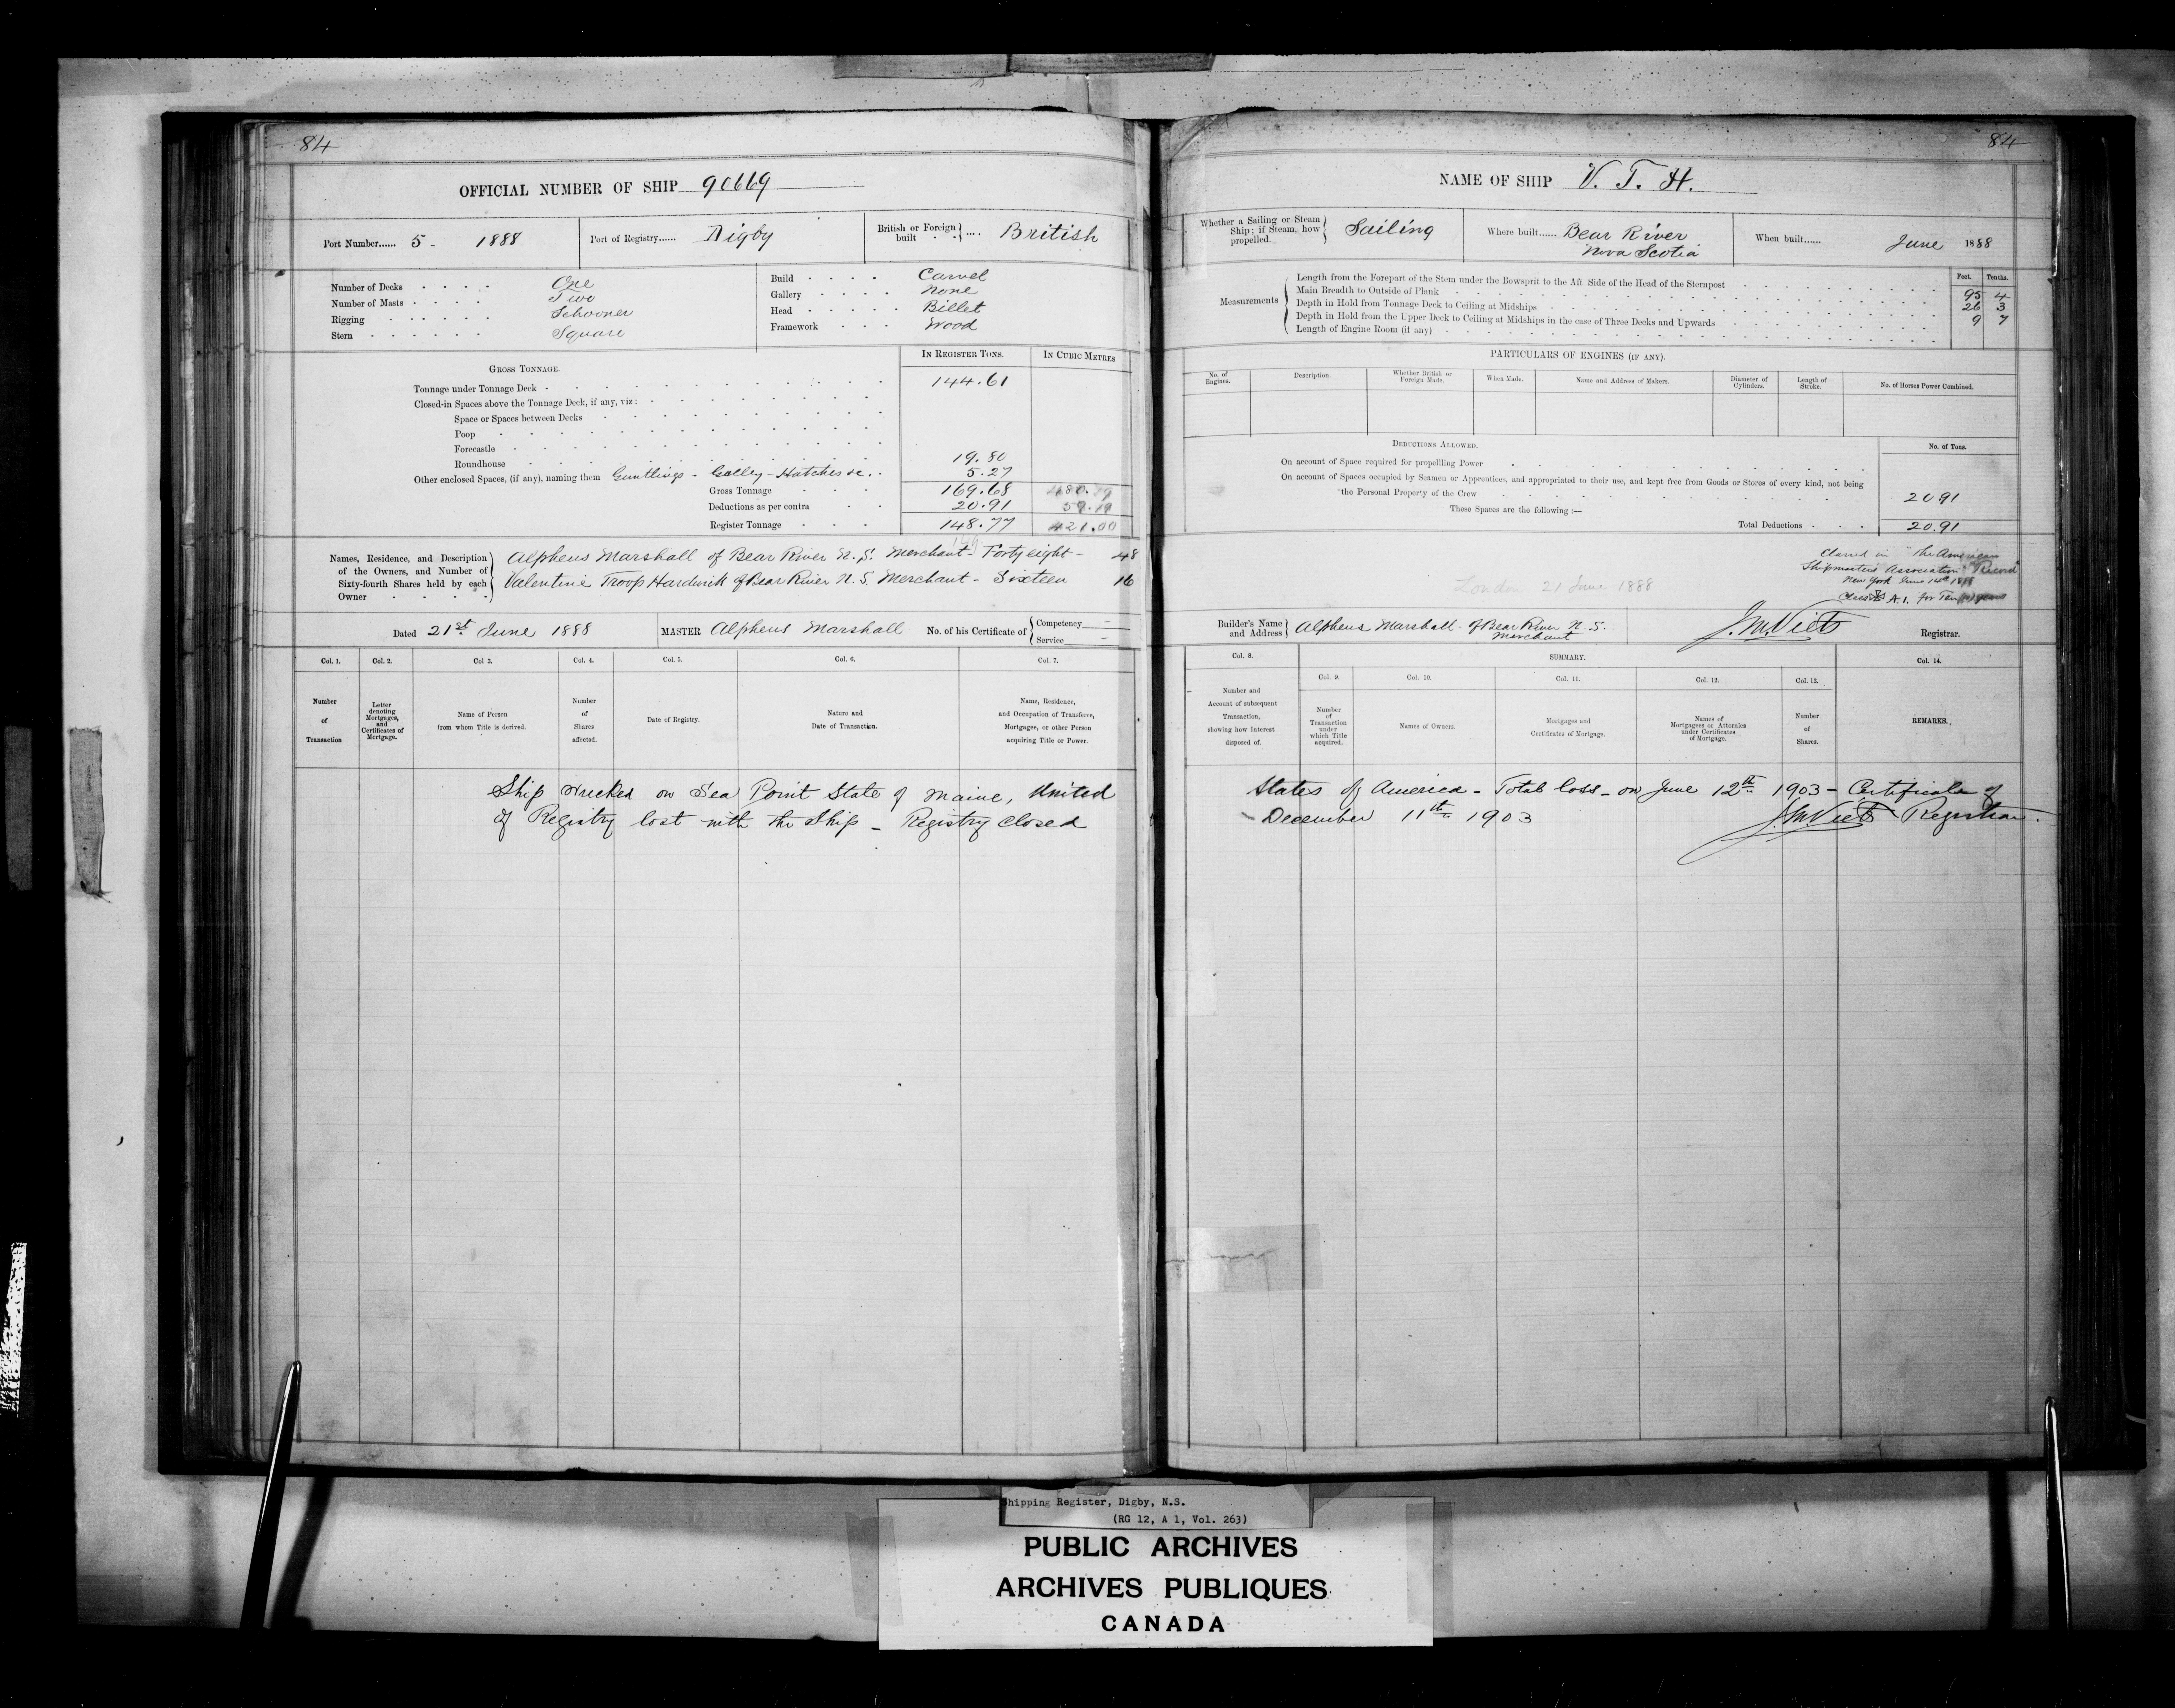 84
OFFICIAL NUMBER OF SHIP 90669
Port Number...... 5 - 1888
Port of Registry...... Digby
British or Foreign built } .... British
Number of Decks One
Number of Masts Two
Rigging Schooner
Stern Square
Build Carvel
Gallery None
Head Billet
Framework Wood
GROSS TONNAGE.
IN REGISTER TONS.
IN CUBIC METRES
Tonnage under Tonnage Deck 144.61
Closed-in Spaces above the Tonnage Deck, if any, viz:
Space or Spaces between Decks
Poop
Forecastle
Roundhouse 19.80
Other enclosed Spaces, (if any), naming them - Galley - Hatches &c. 5.27
Gross Tonnage 169.68 480.
Deductions as per contra 20.91 59.19
Register Tonnage 148.77 421.00
Names, Residence, and Description of the Owners, and Number of Sixty-fourth Shares held by each Owner
Alpheus Marshall of Bear River N.S. Merchant - Forty eight - 48
Valentine Troop Hardwick of Bear River N.S. Merchant - Sixteen 16
Dated 21st June 1888
MASTER Alpheus Marshall No. of his Certificate of { Competency — Service —
Col. 1.
Col. 2.
Col 3.
Col. 4.
Col. 5.
Col. 6.
Col. 7.
Number of Transaction
Letter denoting Mortgages, and Certificates of Mortgage.
Name of Person from whom Title is derived.
Number of Shares affected.
Date of Registry.
Nature and Date of Transaction.
Name, Residence, and Occupation of Transferee, Mortgagee, or other Person acquiring Title or Power.
Ship wrecked on Sea Point State of Maine, United
of Registry lost with the Ship - Registry closed
84
NAME OF SHIP V. T. H.
Whether a Sailing or Steam Ship; if Steam, how propelled. } Sailing
Where built...... Bear River
Nova Scotia
When built...... June 1888
Measurements
Feet. Tenths.
Length from the Forepart of the Stem under the Bowsprit to the Aft Side of the Head of the Sternpost 95 4
Main Breadth to Outside of Plank 26 3
Depth in Hold from Tonnage Deck to Ceiling at Midships 9 7
Depth in Hold from the Upper Deck to Ceiling at Midships in the case of Three Decks and Upwards
Length of Engine Room (if any)
PARTICULARS OF ENGINES (IF ANY).
No. of Engines.
Description.
Whether British or Foreign Made.
When Made.
Name and Address of Makers.
Diameter of Cylinders.
Length of Stroke.
No. of Horses Power Combined.
DEDUCTIONS ALLOWED.
No. of Tons.
On account of Space required for propelling Power
On account of Spaces occupied by Seamen or Apprentices, and appropriated to their use, and kept free from Goods or Stores of every kind, not being
the Personal Property of the Crew 20 91
These Spaces are the following :—
Total Deductions 20.91
Classed in "The American
Shipmasters Association Record"
New York June 14th 1888
Class A.1. for Ten years
London 21 June 1888
Builder's Name and Address } Alpheus Marshall - of Bear River N.S.
Merchant
J.M.Viets Registrar.
Col. 8.
SUMMARY.
Col. 14.
Col. 9.
Col. 10.
Col. 11.
Col. 12.
Col. 13.
Number and Account of subsequent Transaction, showing how Interest disposed of.
Number of Transaction under which Title acquired.
Names of Owners.
Mortgages and Certificates of Mortgage.
Names of Mortgagees or Attornies under Certificates of Mortgage.
Number of Shares.
REMARKS.
States of America - Total loss - on June 12th 1903 - Certificate of
December 11th 1903 J.M.Viets Registrar.
hipping Register, Digby, N.S.
(RG 12, A 1, Vol. 263)
PUBLIC ARCHIVES
ARCHIVES PUBLIQUES
CANADA